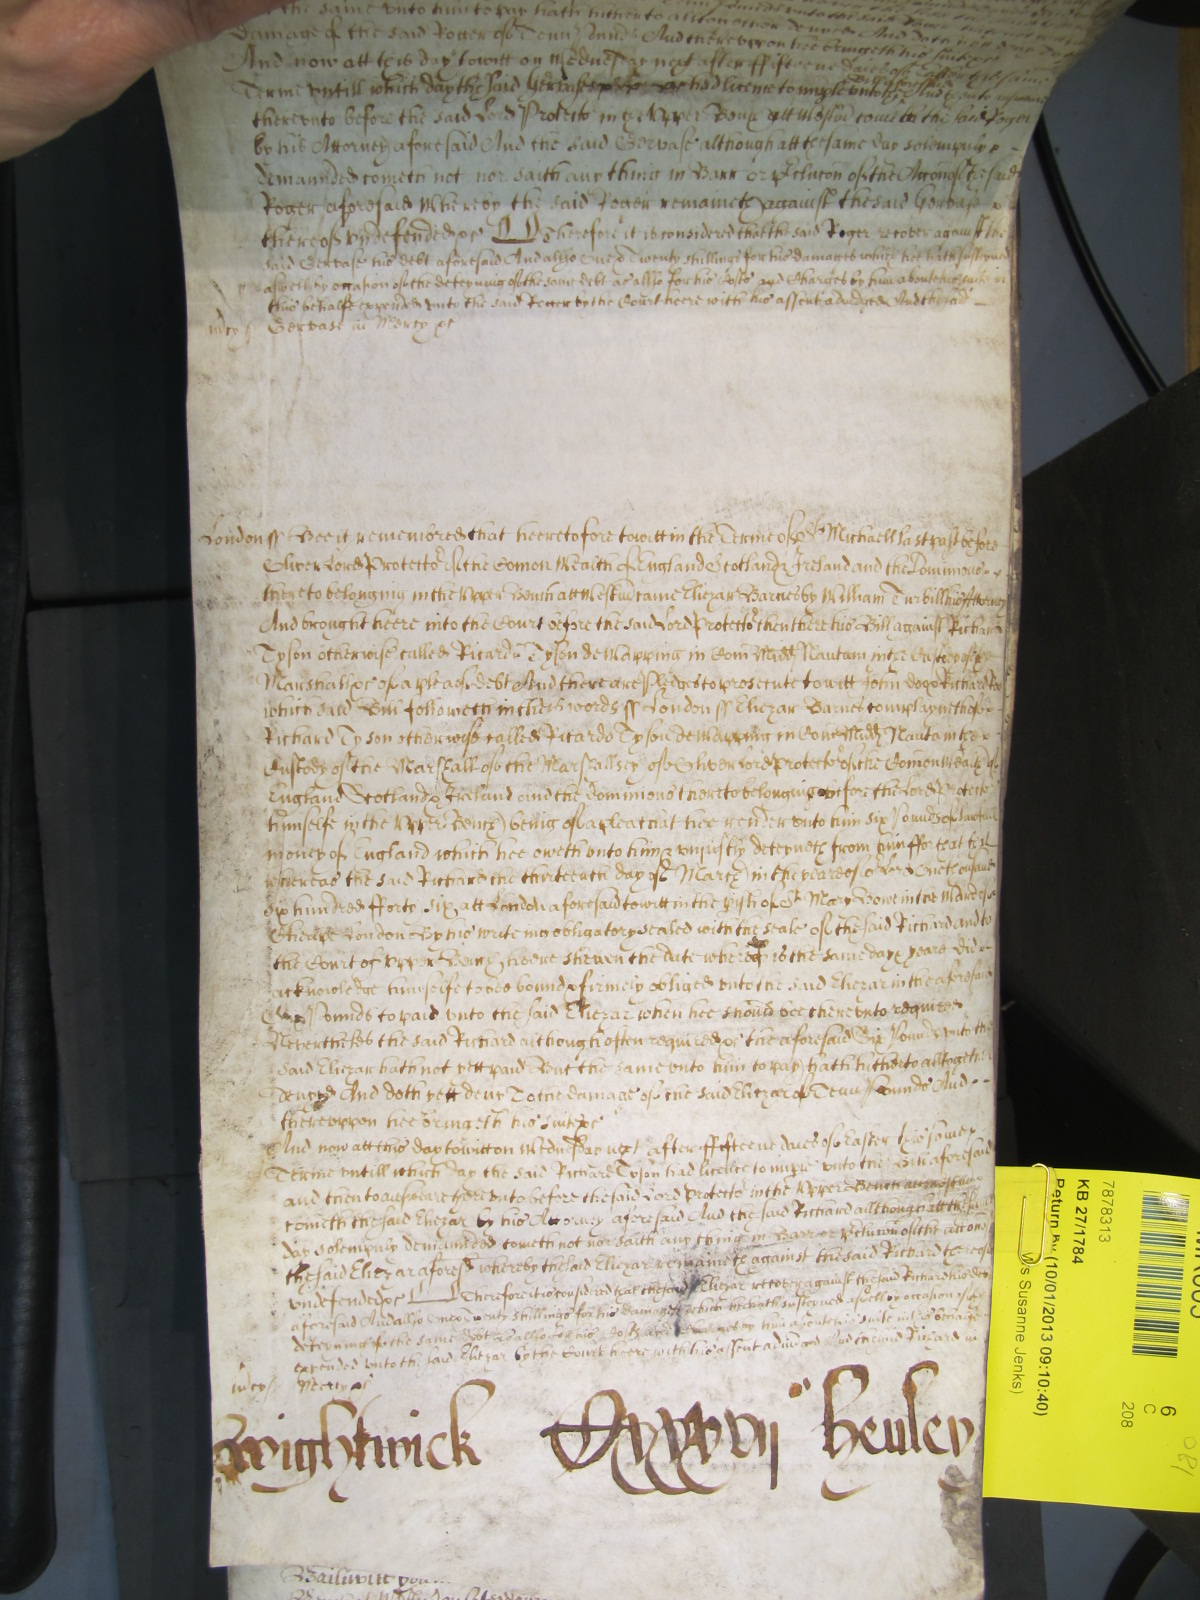 the same unto him to pay hath hitherto altogether denyed And doth yett deny To the
damage of the said Roger of Tenn pounds And thereuppon hee bringeth his suite &c
And now att this day to witt on Wednesday next after fifteene daies of Easter this same
Terme untill which day the said Gervase had licence to imple unto the Bill and then to answeare
thereunto before the said Lord Protector in the Upper Bench att Westm cometh the said Roger
by his Attorney aforesaid And the said Gervase although att the same day solempnly
demaunded cometh not nor saith any thing in Barr or preclucon of the Accon of the said
Roger aforesaid Whereby the said Roger remaineth against the said Gervase
thereof undefended &c Therefore it is considered that the said Roger recover against the
said Gervase his debt aforesaid And alsoe Twenty shillings for his damages which hee hath susteyned
aswell by occasion of the deteyning of the same debt as allso for his Costs and Charges by him about his suite in
this behalfe expended unto the said Roger by the Court heere with his assent adiudged And the said
mercy Gervase in Mercy &c
London ss Bee it remembred that heeretofore to witt in the Terme of St Michaell last past before
Oliver Lord Protector of the Comon Wealth of England Scotland & Ireland and the Dominions
thereto belonging in the Upper Bench att Westm came Eliezar Barnes by William Turbill his Attorney
And brought heere into the Court before the said Lord Protector then there his Bill against Richard
Tyson otherwise called Ricardu Tyson de Wapping in Com Midd Nautam in the Custody of the
Marshall &c of a plea of debt And there are pledges to prosecute to witt John Doe & Richard Roe
which said Bill followeth in theis words ss London ss Eliezar Barnes complayneth of
Richard Tyson otherwise called Ricardu Tyson de Wapping in Com Midd Nautam in the
Custody of the Marshall of the Marshallsey of Oliver Lord Protector of the Comon Wealth of
England Scotland & Ireland and the Dominions thereto belonging before the Lord Protector
himselfe in the Upper Bench being of a plea that hee render unto him six pounds of lawfull
money of England which hee oweth unto him & uniustly deteyneth from him ffor that to witt
whereas the said Richard the thirteenth day of March in the yeare of our Lord One thousand
six hundred fforty six att London aforesaid to witt in the parish of St Mary Bowe in the Ward of
Cheape London By his write inge obligatory sealed with the seale of the said Richard and to
the Court of Upper Bench heere shewen the date whereof is the same day & yeare did
acknowledge himselfe to bee bound & firmely obliged unto the said Eliezar in the aforesaid
Six Pounds to paid unto the said Eliezar when hee should bee thereunto required
Neverthelesse the said Richard although often required &c the aforesaid Six Pounds unto the
said Eliezar hath not yett paid But the same unto him to pay hath hitherto altogether
denyed And doth yett deny To the damage of the said Eliezar of Tenn Pounds And
thereuppon hee bringeth his suite &c
And now att this day to witt on Wednesday next after ffifteene daies of Easter this same
Terme untill which day the said Richard Tyson had licence to imple unto the Bill aforesaid
and then to answeare thereunto before the said Lord Protector in the Upper Bench att Westm
cometh the said Eliezar by his Attorney aforesaid And the said Richard although att the same
day solempnly demaunded cometh not nor saith any thing in Barr or preclucon of the accon of
the said Eliezar aforesd whereby the said Eliezar remaineth against the said Richard thereof
undefended &c Therefore it is considered that the said Eliezar recover against the said Richard his debt
aforesaid And alsoe Twenty shillings for his damages which hee hath susteyned aswell by occasion of the
deteyning of the same debt as allso for his Costs and Charges by him about his suite in this behalfe
expended unto the said Eliezar by the Court heere with his assent adiudged And the said Richard in
mercy Mercy &c
Wightwick Henley
7878313
KB 27/1784
Return By (10/01/2013 09:10:40)
Susanne Jenks)
6
C
208